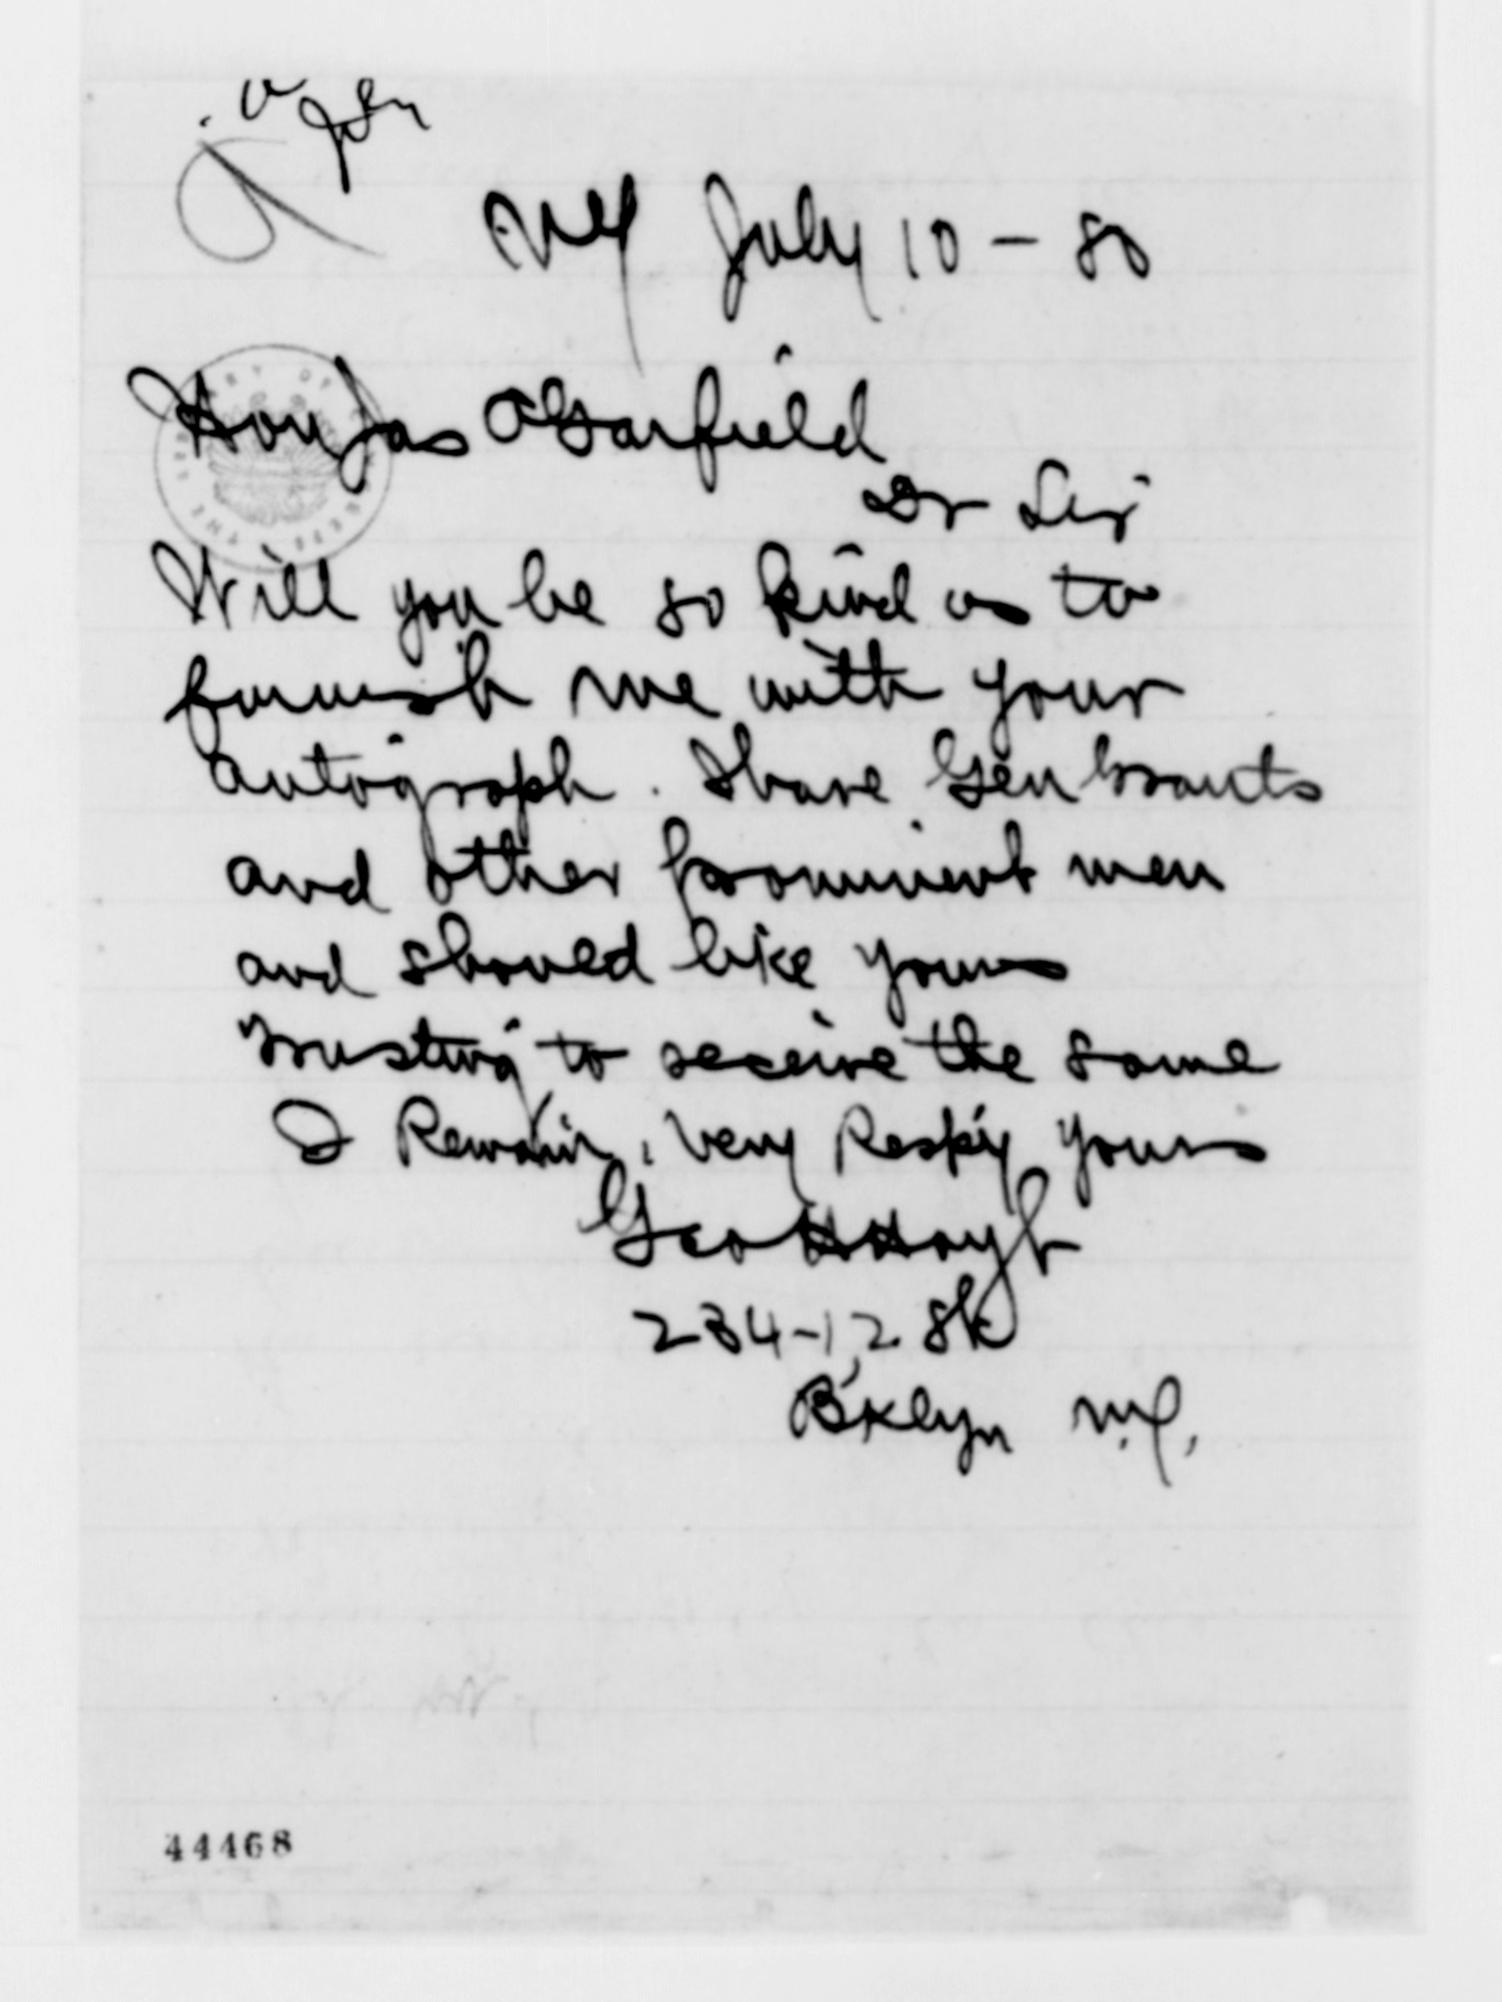 NY July 10 - 80
Hon Jas A Garfield
Dr Sir
Will you be so kind as to
furnish me with your
autograph. I have Gen Grants
and other prominent men
and should like yours
Trusting to receive the same
I Remain, Very Respy yours
Geo H Hoyt
234-12 St
B'klyn N.Y.
44468